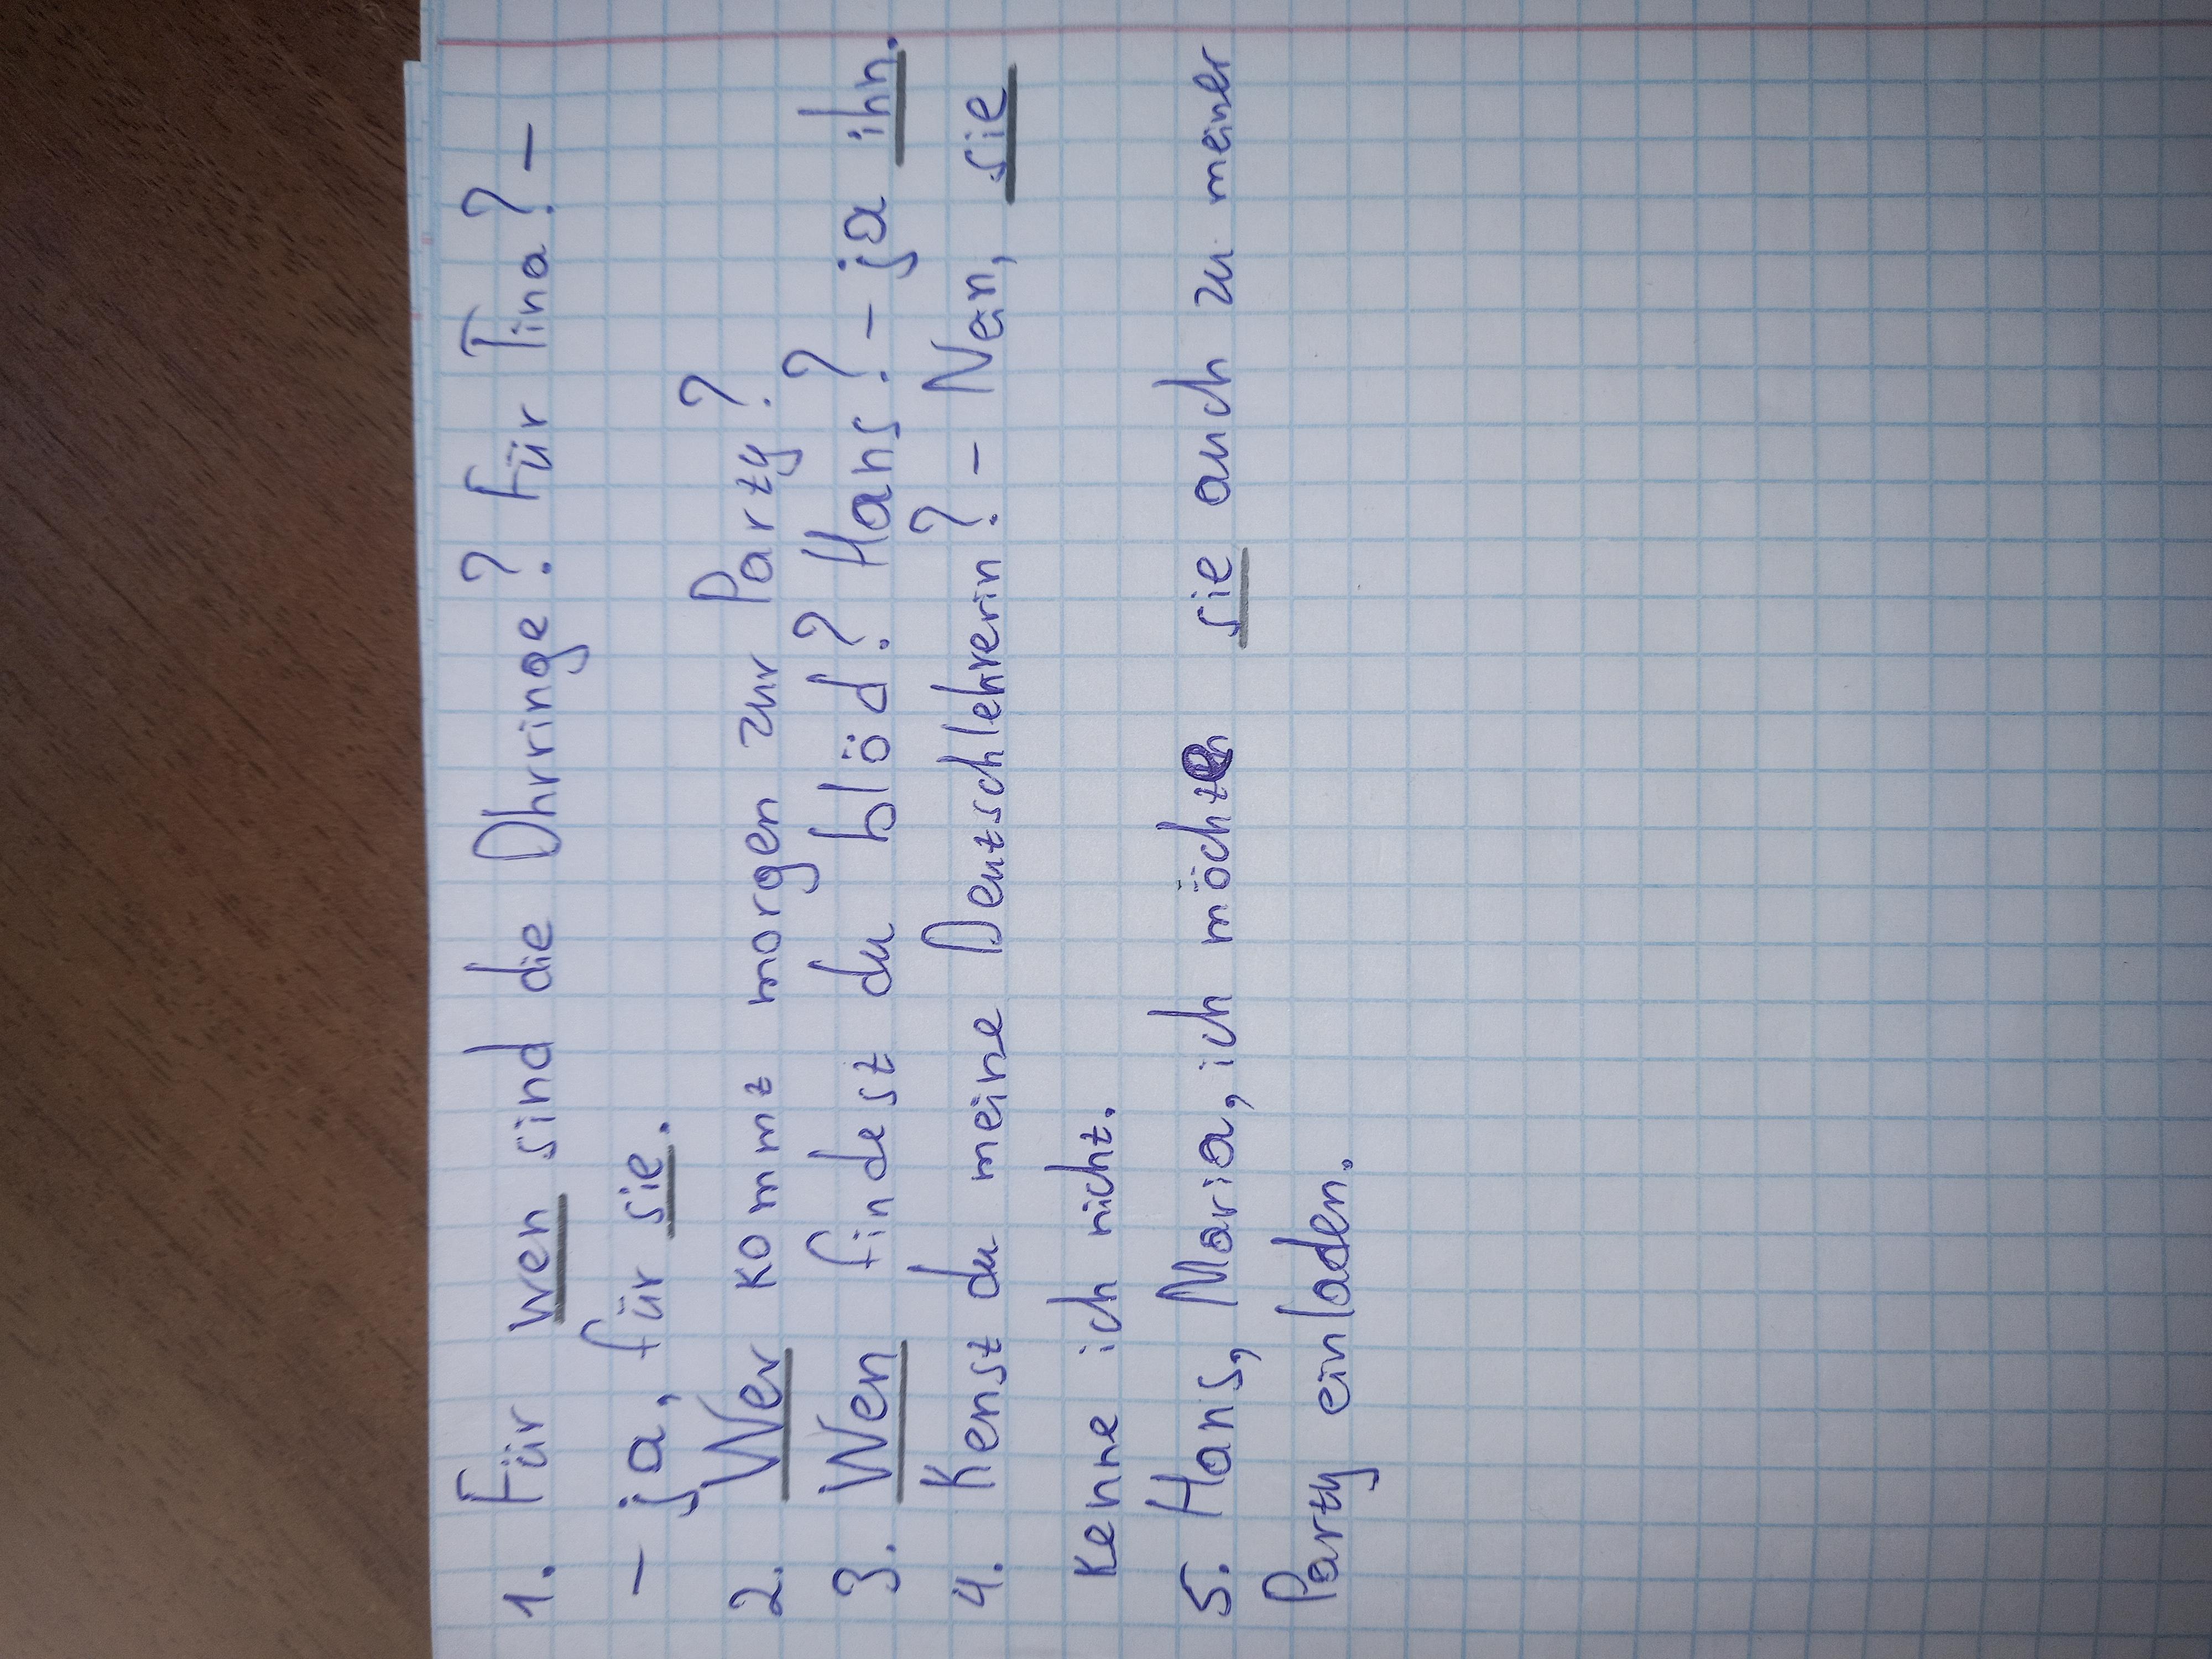 1. Für wen sind die Ohrringe? Für Tina? -
- ja, für sie.
2. Wer kommt morgen zur Party?
3. Wen findest du blöd? Hans? - ja ihn.
4. Kenst du meine Deutschlehrerin? - Nein, sie
kenne ich nicht.
5. Hans, Maria, ich möchten sie auch zu meiner
Party einladen.